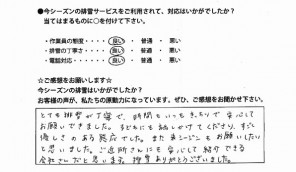 ●今シーズンの排雪サービスをご利用されて、対応はいかがでしたか?
当てはまるものに○を付けて下さい。
・作業員の態度・・・・良い・普通・悪い
・排雪の丁寧さ・・・・良い・普通・悪い
・電話対応・・・・・・良い・普通・悪い
☆ご感想をお願いします☆
今シーズンの排雪はいかがでしたか?
お客様の声が、私たちの原動力になっています。ぜひ、ご感想をお聞かせ下さい。
とても排雪が丁寧で、時間もいつもきっちりで安心して
お願いできました。子どもにも話しかけてくださり、すごく
優しさのある対応でした。また来シーズンもお願いしたい
と思いました。ご近所さんにも安心して紹介できる
会社さんだと思います。排雪ありがとうございました。